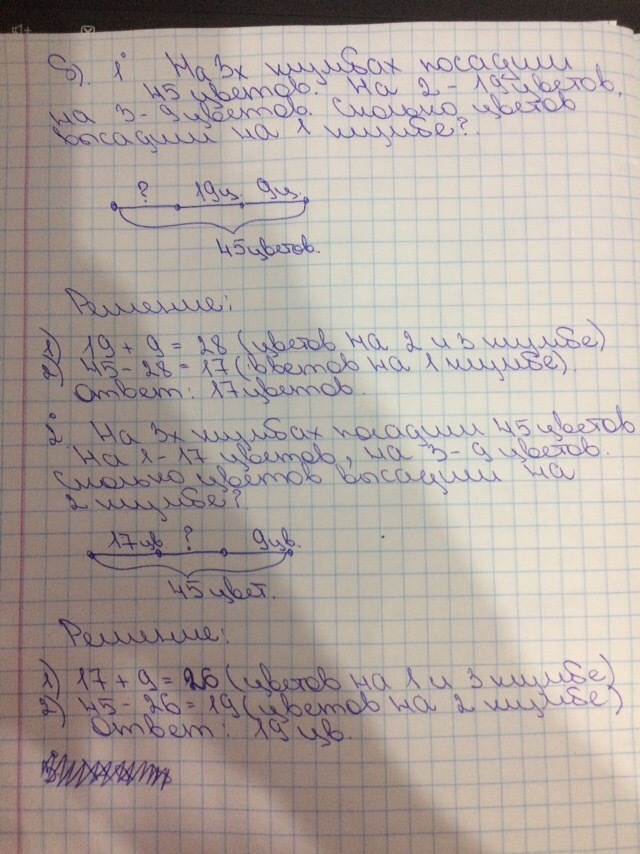 б). 1. На 3х клумбах посадили
45 цветов. На 2 - 19 цветов,
на 3 - 9 цветов. Сколько цветов
высадили на 1 клумбе?
? 19ц. 9ц.
45 цветов.
Решение:
1) 19 + 9 = 28 (цветов на 2 и 3 клумбе)
2) 45 - 28 = 17 (цветов на 1 клумбе).
Ответ: 17 цветов.
2. На 3х клумбах посадили 45 цветов
На 1 - 17 цветов, на 3 - 9 цветов.
Сколько цветов высадили на
2 клумбе?
17цв ? 9цв.
45 цвет.
Решение:
1) 17 + 9 = 26 (цветов на 1 и 3 клумбе)
2) 45 - 26 = 19 (цветов на 2 клумбе)
Ответ: 19 цв.